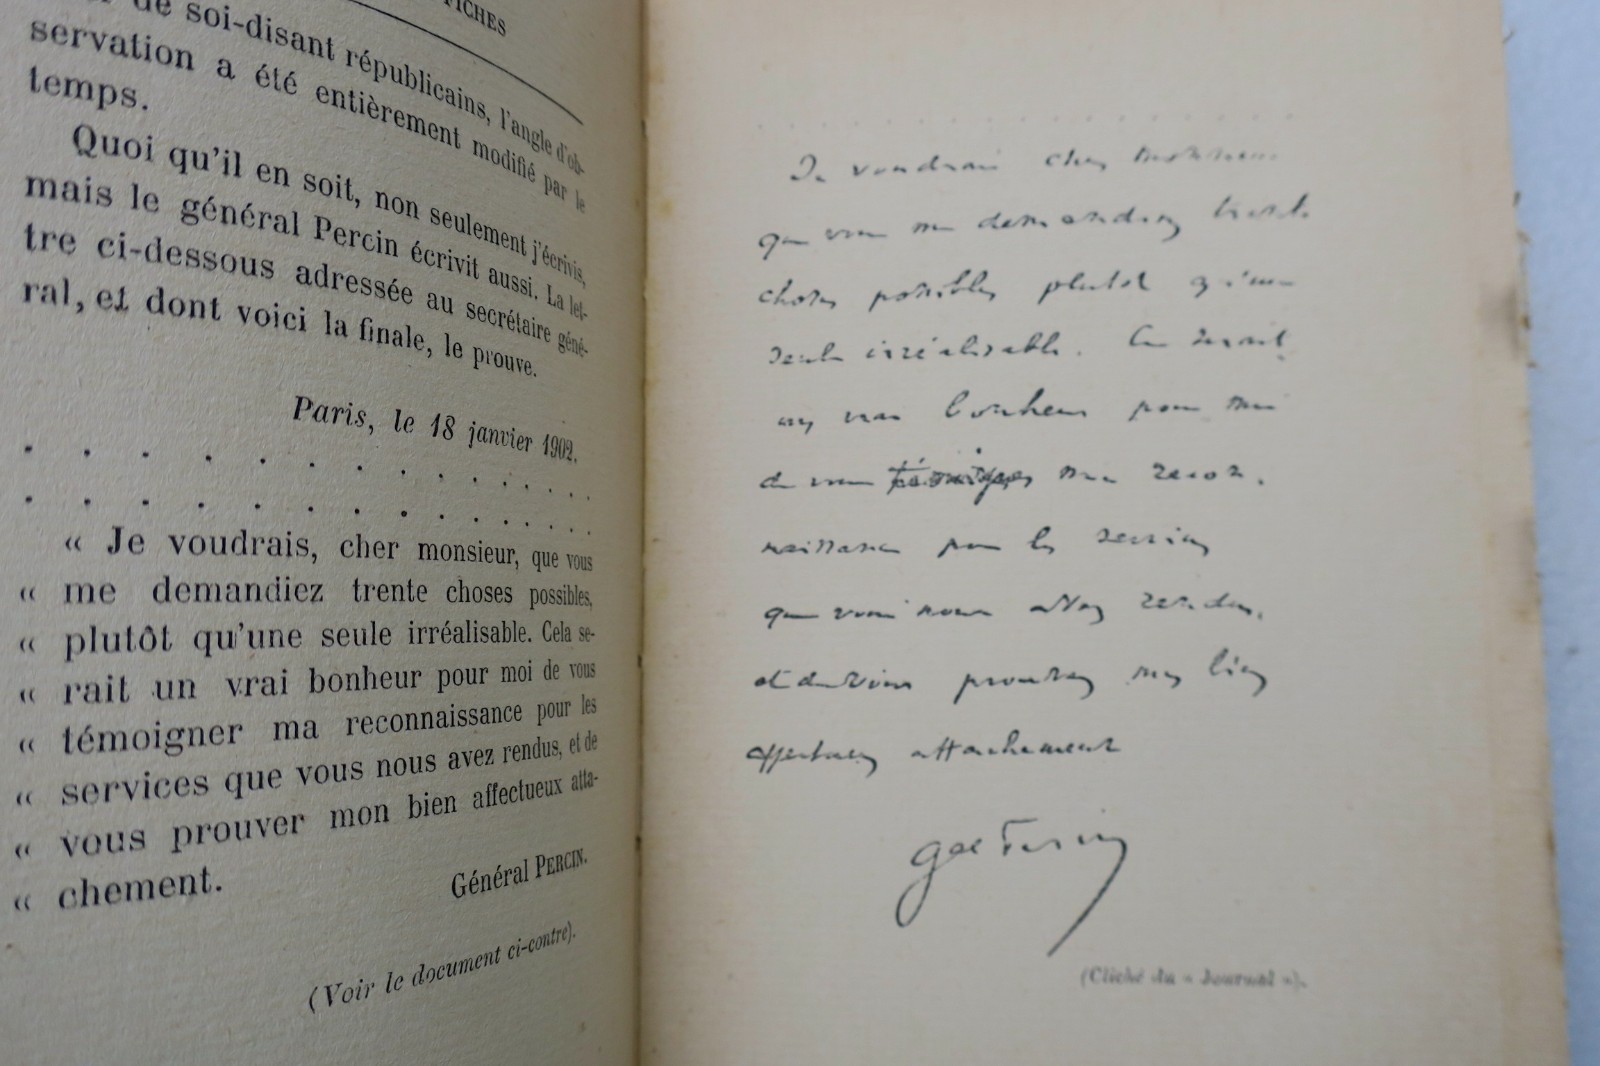 FICHES
de soi-disant républicains, l'angle d'ob-
servation a été entièrement modifié par le
temps.
Quoi qu'il en soit, non seulement j'écrivis,
mais le général Percin écrivit aussi. La let-
tre ci-dessous adressée au secrétaire géné-
ral, et dont voici la finale, le prouve.
Paris, le 18 janvier 1902.
« Je voudrais, cher monsieur, que vous
« me demandiez trente choses possibles,
« plutôt qu'une seule irréalisable. Cela se-
« rait un vrai bonheur pour moi de vous
« témoigner ma reconnaissance pour les
« services que vous nous avez rendus, et de
« vous prouver mon bien affectueux atta-
« chement.
Général PERCIN.
(Voir le document ci-contre).
Je voudrais cher monsieur
que vous me demandiez trente
choses possibles plutôt qu'une
seule irréalisable. Ce serait
un vrai bonheur pour moi
de vous témoigner ma recon.
naissance pour les services
que vous nous avez rendus,
et de vous prouver mon bien
affectueux attachement
Gal Percin
(Cliché du « Journal »).